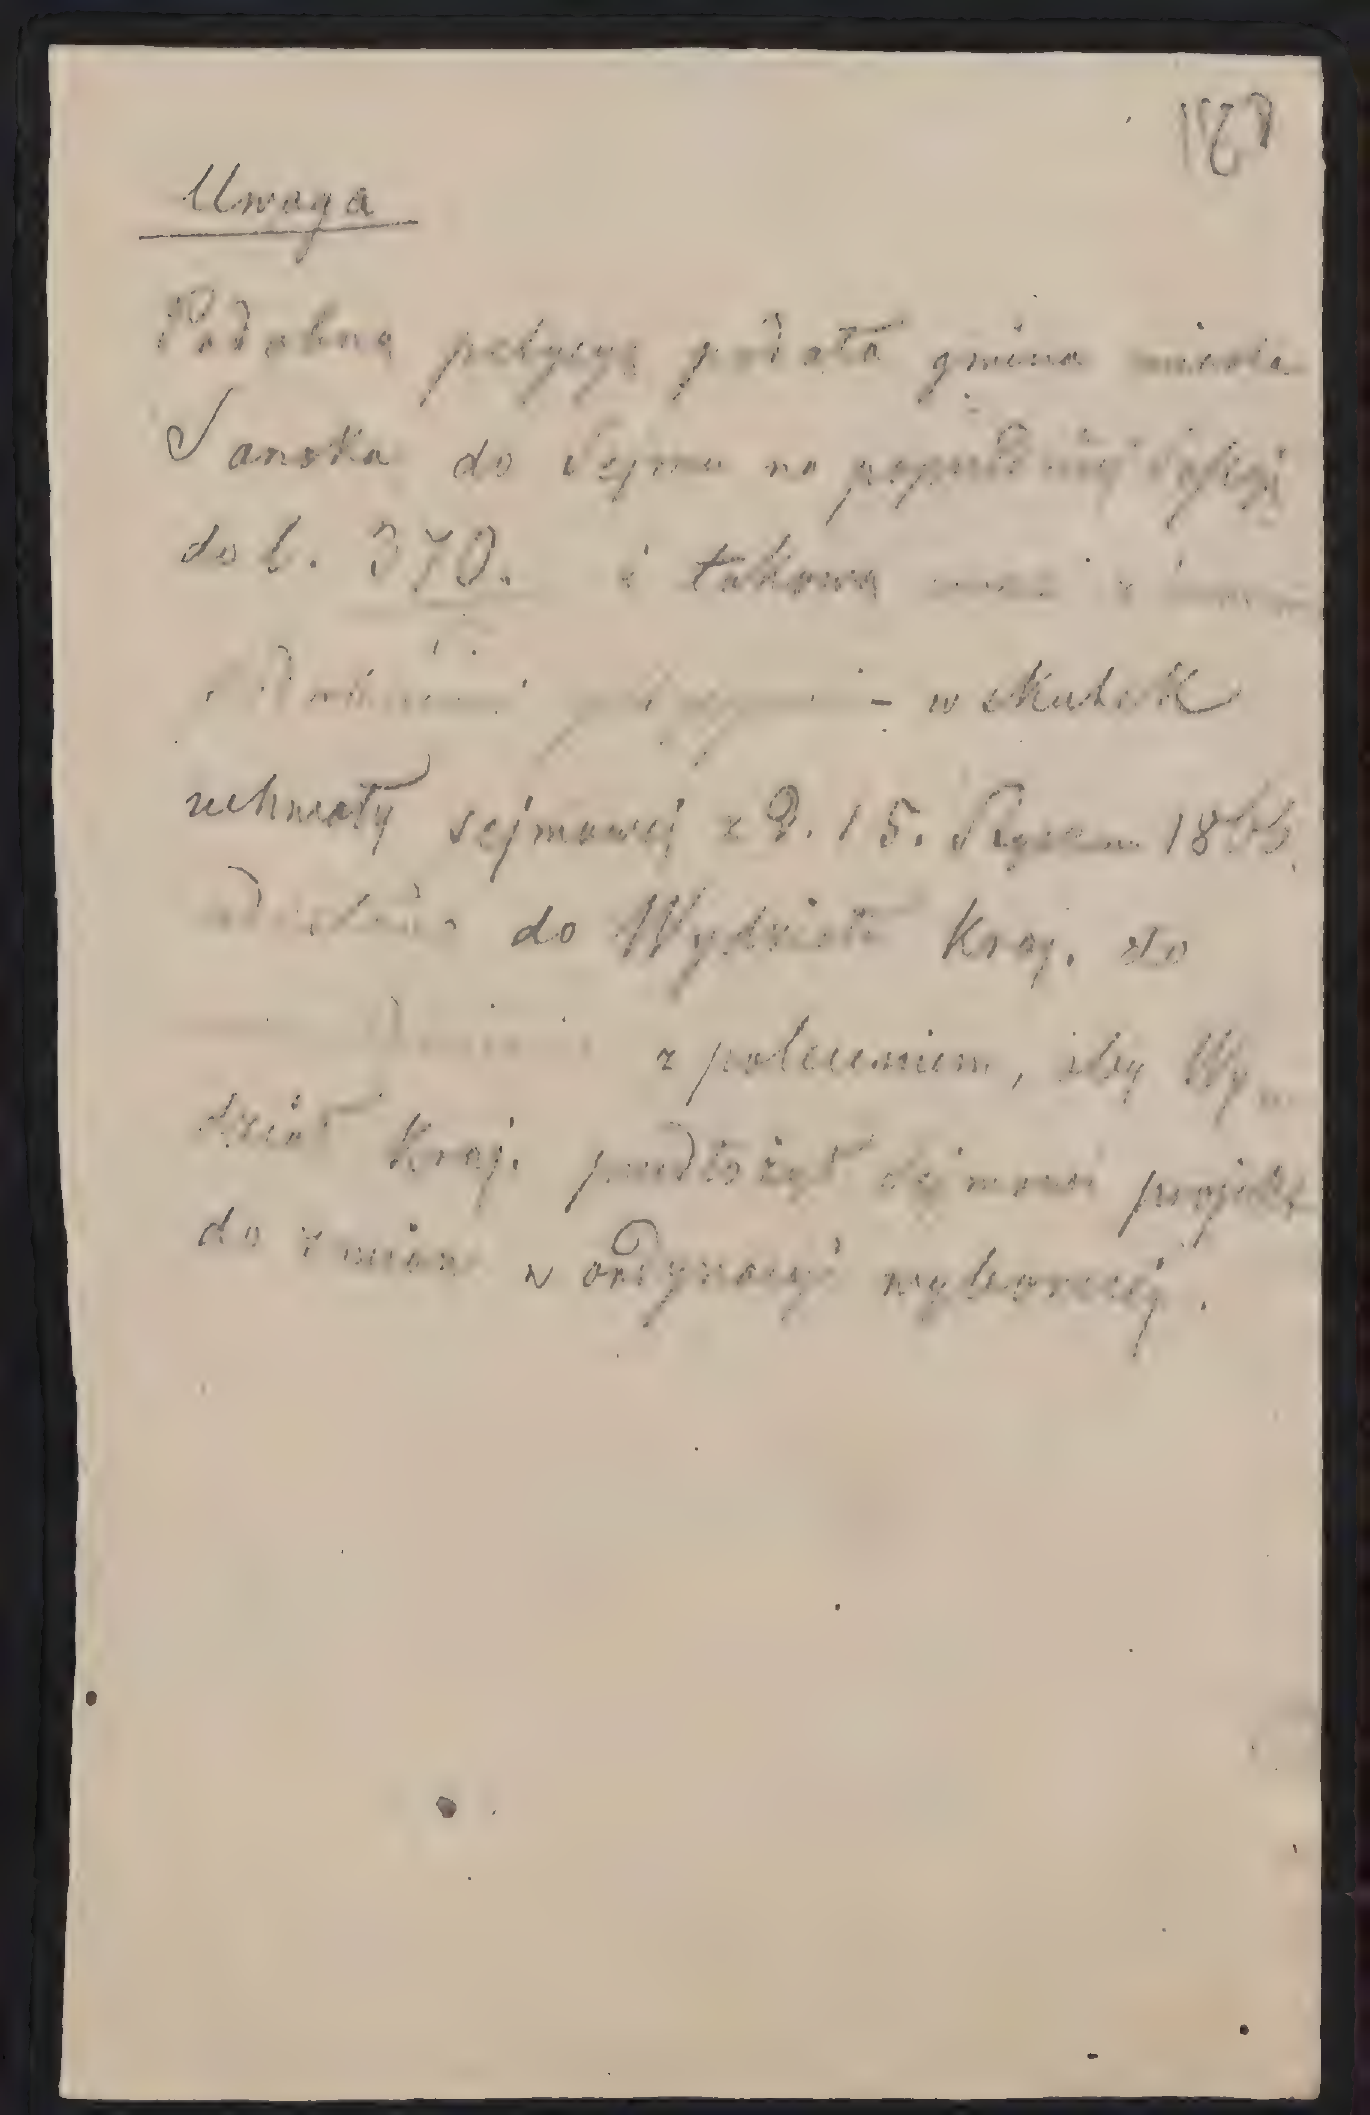 Uwaga
Podobną petycyę podała gmina miasta
Sanoka do Sejmu na poprzedniej Sesyi
do l. 370. i takową
w skutek
uchwały sejmowej z d. 15. Stycznia 1866
do Wydziału Kraj. do
z poleceniem, aby Wy-
dział Kraj. przedłożył Sejmowi projekt
do zmian w ordynacyi wyborczej.